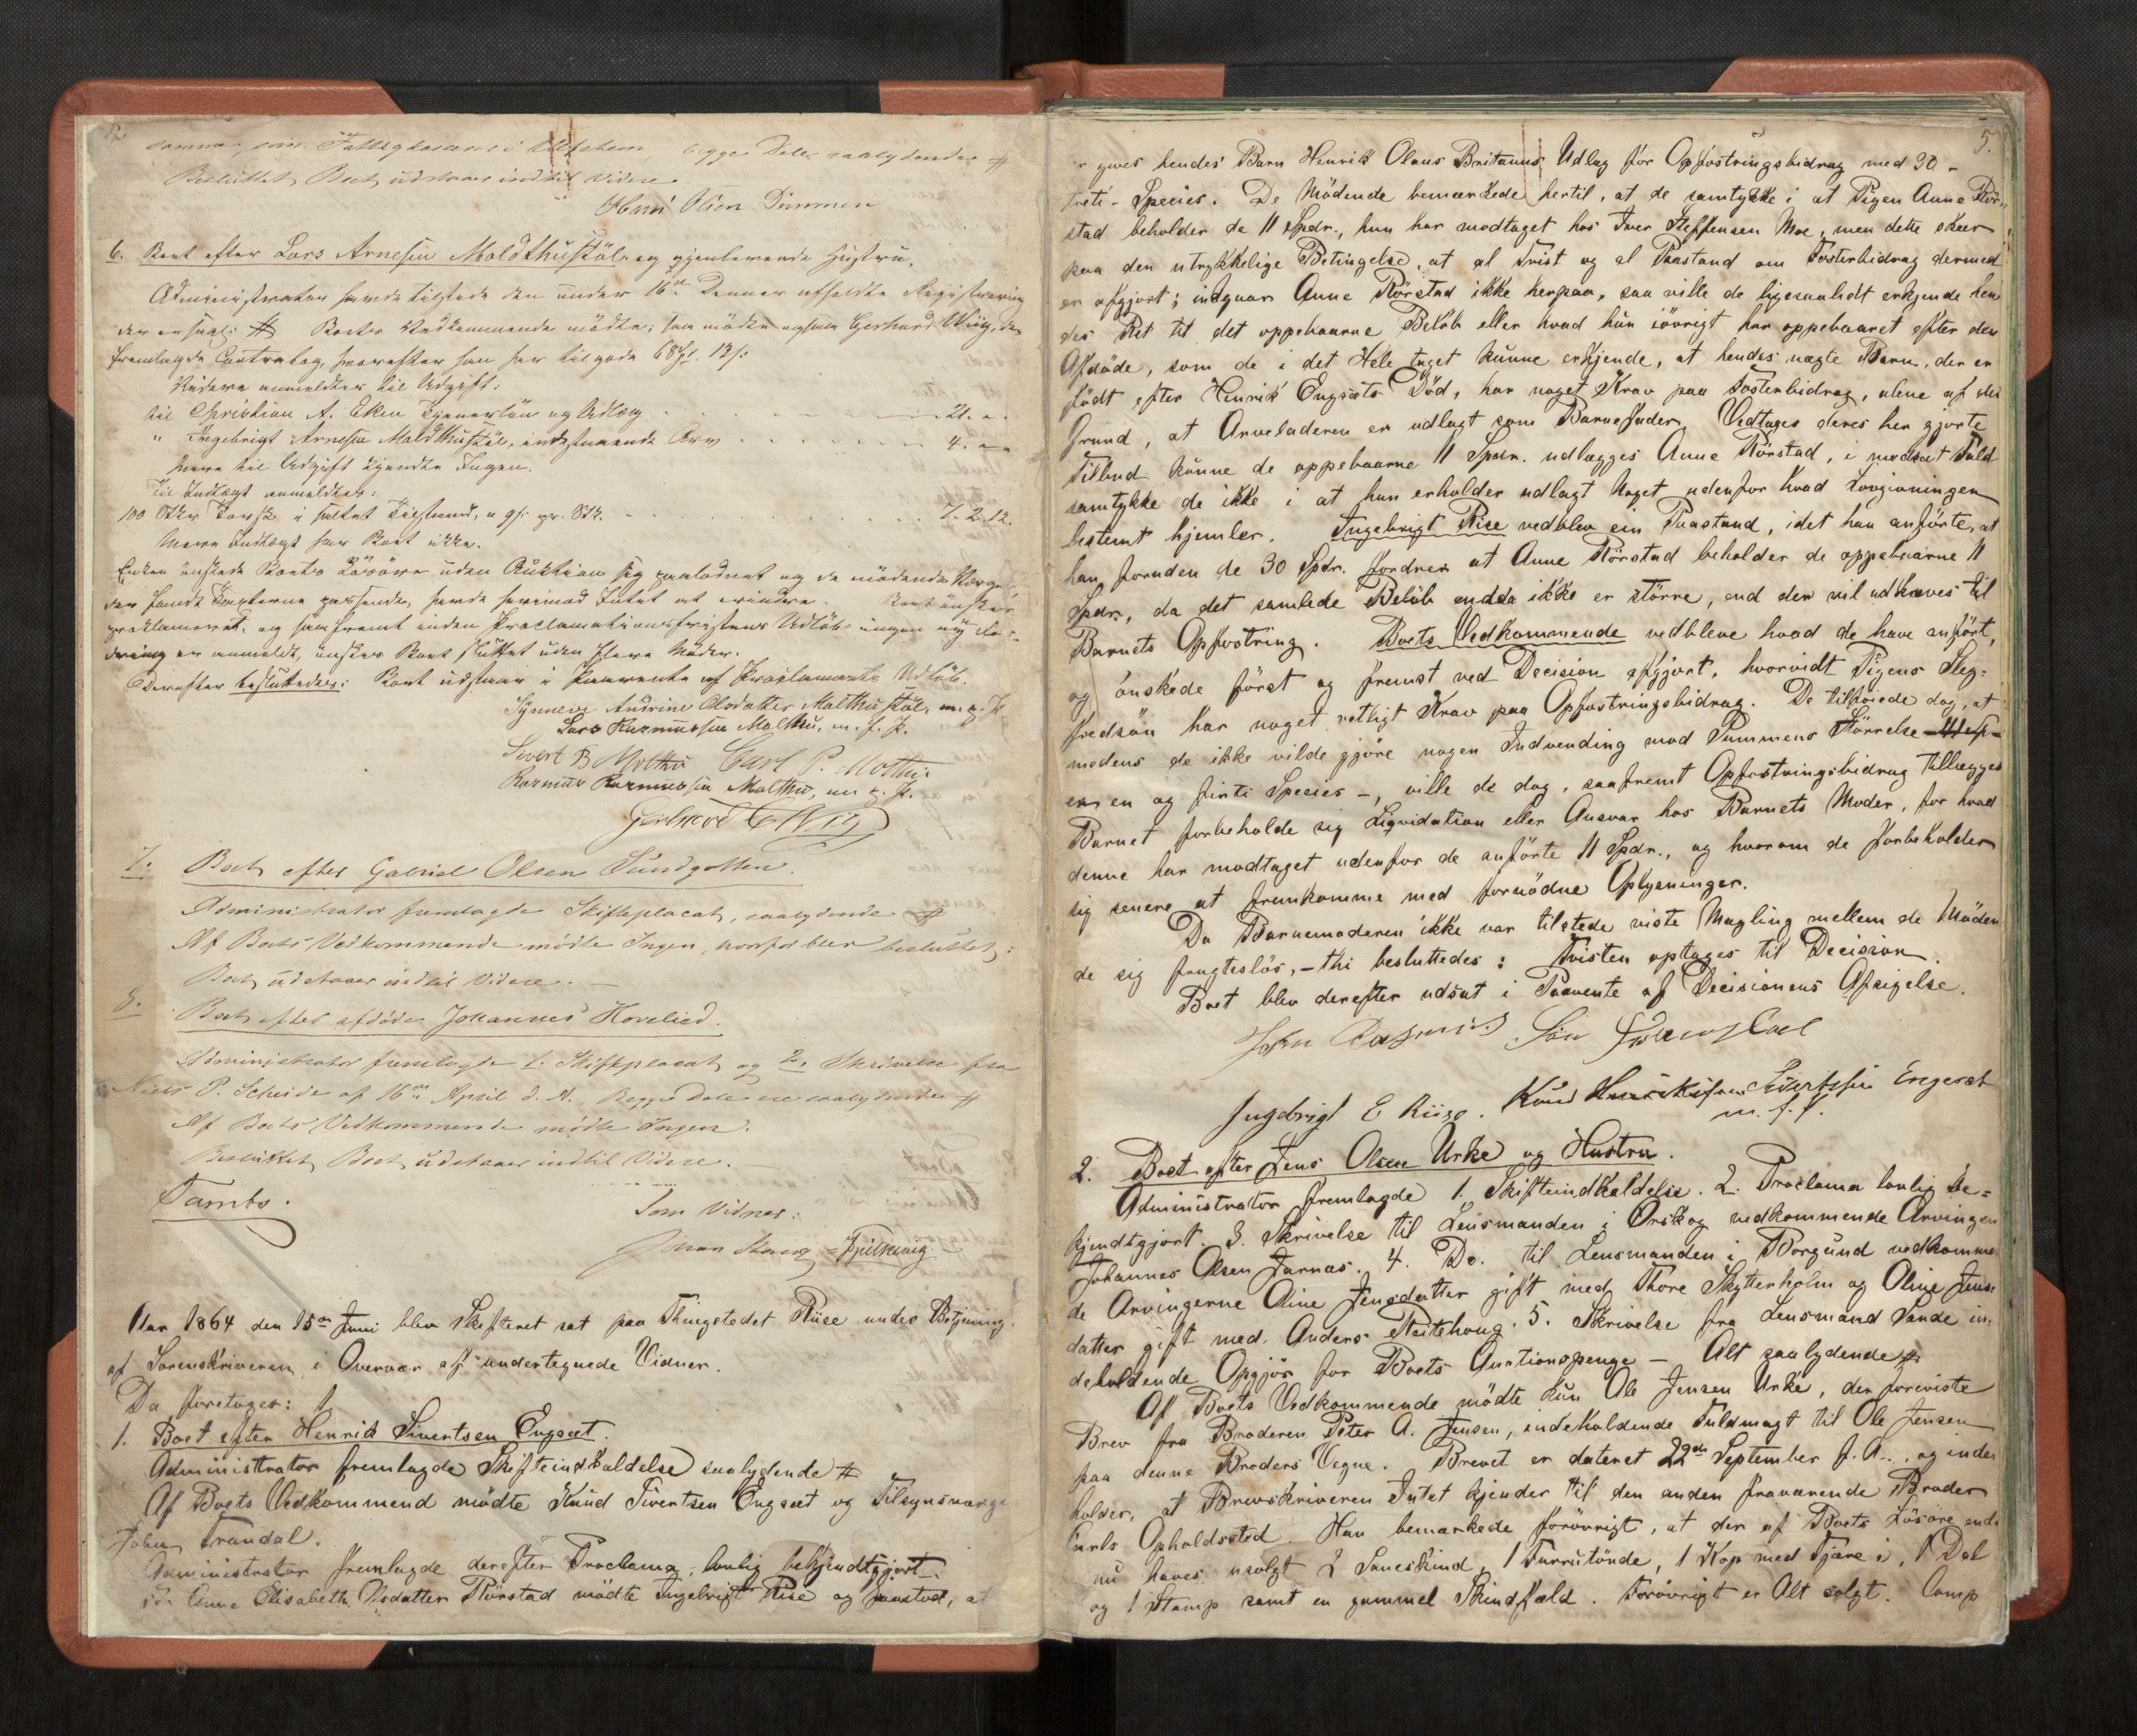 samme, som Fattigkassens i Ulfsten, begge Dele saalydende #
Besluttet, Boet udstaaer indtil Videre.
Hans Olsen Dimmen
6. Boet efter Lars Arnesen Moldthustøl og gjenlevende Hustru.
Administrator havde tilstede den under 16de Dennes afholdte Registrering
der ersaal: # Boets Vedkommende mødte; saa mødte ogsaa Gerhard Wiig, der
fremlagde Contrabog, hvorefter han har tilgode 68 Spd. 12 s:
Videre anmeldtes til Udgift:
til Christian A. Eken Tjenerløn og Udlæg 21. " "
" Ingebrigt Arnesen Moldthustøl, indestaaende Arv 4. " "
Mere til Udgift kjendte Ingen.
Til Indtægt anmeldtes:
100 Stkr Torsk i saltet Tilstand, a 9 s: pr. Stk. 7. 2. 12.
Mere Indtægt har Boet ikke.
Enken ønskede Boets Løsøre uden Auktion sig udlodnet og de mødende Værge
der fandt Taxterne passende, havde herimod Intet at erindre. Boet ønskes
proklameret, og saafremt inden Proclamationsfristens Udløb ingen ny For-
dring er anmeldt, ønskes Boet sluttet uden flere Møder.
Derefter besluttedes: Boet udstaar i Paavente af Proclamaets Udløb.
Synneve Andrine Olsdatter Molthustøl, m. p. P.
Lars Rasmussen Molthu, m. f. P.
Sivert B Molthu Carl P. Molthu
Rasmus Rasmussen Molthu, m p. P.
Gerhard C Wiig
7. Boet efter Gabriel Olsen Sundgotten.
Administrator fremlagde Skifteplacat, saalydende #
Af Boets Vedkommende mødte Ingen, hvorfor blev besluttet:
Boet udstaaer indtil Videre.
8. Boet efter afdøde Johannes Hovelied.
Administrator fremlagde 1. Skifteplacat og 2, Skrivelse fra
Niels P. Scheide af 16de April d. A. Begge Dele ere saalydende #
Af Boets Vedkommende mødte Ingen.
Besluttet, Boet udstaaer indtil Videre.
Tambs.
Som Vidner:
Johan Skarg Fjelbuvig
Aar 1864 den 15de Juni blev Skifteret sat paa Thingstedet Riise under Betjening
af Sorenskriveren i Overvær af undertegnede Vidner.
Da foretoges:
1. Boet efter Henrik Sivertsen Engset.
Administrator fremlagde Skifteindkaldelse saalydende #
Af Boets Vedkommend mødte Knud Sivertsen Engset og Tilsynsværge
John Trandal.
Administrator fremlagde derefter Proclama, lovlig bekjendtgjort.
For Anne Elisabeth Olsdatter Rørstad mødte Ingebrigt Rise og paastod, at
5.
der gives hendes Barn Henrik Olaus Britanus Udlag for Opfostringsbidrag med 30 -
treti - Species. De Mødende bemærkede hertil, at de samtykke i at Pigen Anne Rør-
stad beholder de 11 Spdr., hun har modtaget hos Iver Steffensen Moe, men dette skeer
paa den utrykkelige Betingelse, at al Trist og al Paastand om Fosterbidrag dermed
er afgjort; indgaar Anne Rørstad ikke herpaa, saa ville de ligesaalidt erkjende hen
des Ret til det oppebaarne Beløb eller hvad hun iøvrigt har oppebaaret efter den
Afdøde, som de i det Hele taget kunne erkjende, at hendes uægte Barn, der er
født efter Henrik Engsets Død, har noget Krav paa Fosterbidrag, alene af den
Grund, at Arveladeren er udlagt som Barnefader. Vedtages deres her gjorte
Tilbud kunne de oppebaarne 11 Spdr. udlægges Anne Rørstad, i modsat Fald
samtykke de ikke i at hun erholder udlagt Noget udenfor hvad Lovgivningen
bestemt hjemler. Ingebrigt Rise vedblev sin Paastand, idet han anførte, at
han foruden de 30 Spdr. fordrer at Anne Rørstad beholder de oppebaarne 11
Spdr., da det samlede Beløb endda ikke er større, end der vil udkræves til
Barnets Opfostring. Boets Vedkommende vedbleve hvad de have anført,
og ønskede først og fremst ved Decision afgjort, hvorvidt Pigens Sleg-
fredsøn har noget retligt Krav paa Opfostringsbidrag. De tilføiede dog, at
medens de ikke vilde gjøre nogen Indvending mod Summens Størrelse
er en og firti Species -, ville de dog, saafremt Opfostringsbidrag tillægges
Barnet forbeholde sig Liqvidation eller Ansvar hos Barnets Moder, for hvad
denne har modtaget udenfor de anførte 11 Spdr., og hvorom de forbeholder
sig senere at fremkomme med fornødne Oplysninger.
Da Barnemoderen ikke var tilstede viste Mægling mellem de Møden
de sig frugtesløs, - thi besluttedes: Tvisten optages til Decision.
Boet blev derefter udsat i Paavente af Decisionens Afsigelse.
John Rasmus Søn Trandal
Ingebrigt E Riise. Knud Sivertsen Engeset
m. f. P.
2. Boet efter Jens Olsen Urke og Hustru.
Administrator fremlagde 1. Skifteindkaldelse. 2. Proclama lovlig be-
kjendtgjort. 3. Skrivelse til Lensmanden i Ørskog vedkommende Arvingen
Johannes Olsen Jarnæs. 4. Do. til Lensmanden i Borgund vedkommen
de Arvingerne Oline Jensdatter gift med Thore Skytterholm og Oline Jens-
datter gift med Anders Reitehoug. 5. Skrivelse fra Lensmand Sande in-
deholdende Opgjør for Boets Auctionspenge - Alt saalydende #
Af Boets Vedkommende mødte kun Ole Jensen Urke, der foreviste
Brev fra Broderen Peter A. Jensen, indeholdende Fuldmagt til Ole Jensen
paa denne Broders Vegne. Brevet er dateret 22de September f. A., og inde
holder, at Brevskriveren Intet kjender til den anden fraværende Broder
Carls Opholdssted. Han bemærkede forøvrigt, at der af Boets Løsøre end-
nu haves usolgt 2 Saueskind, 1 Furrutønde, 1 Kop med Tjære i, 1 Dal
og 1 Stamp samt en gammel Skindfæld. Forøvrigt er Alt solgt. Comp